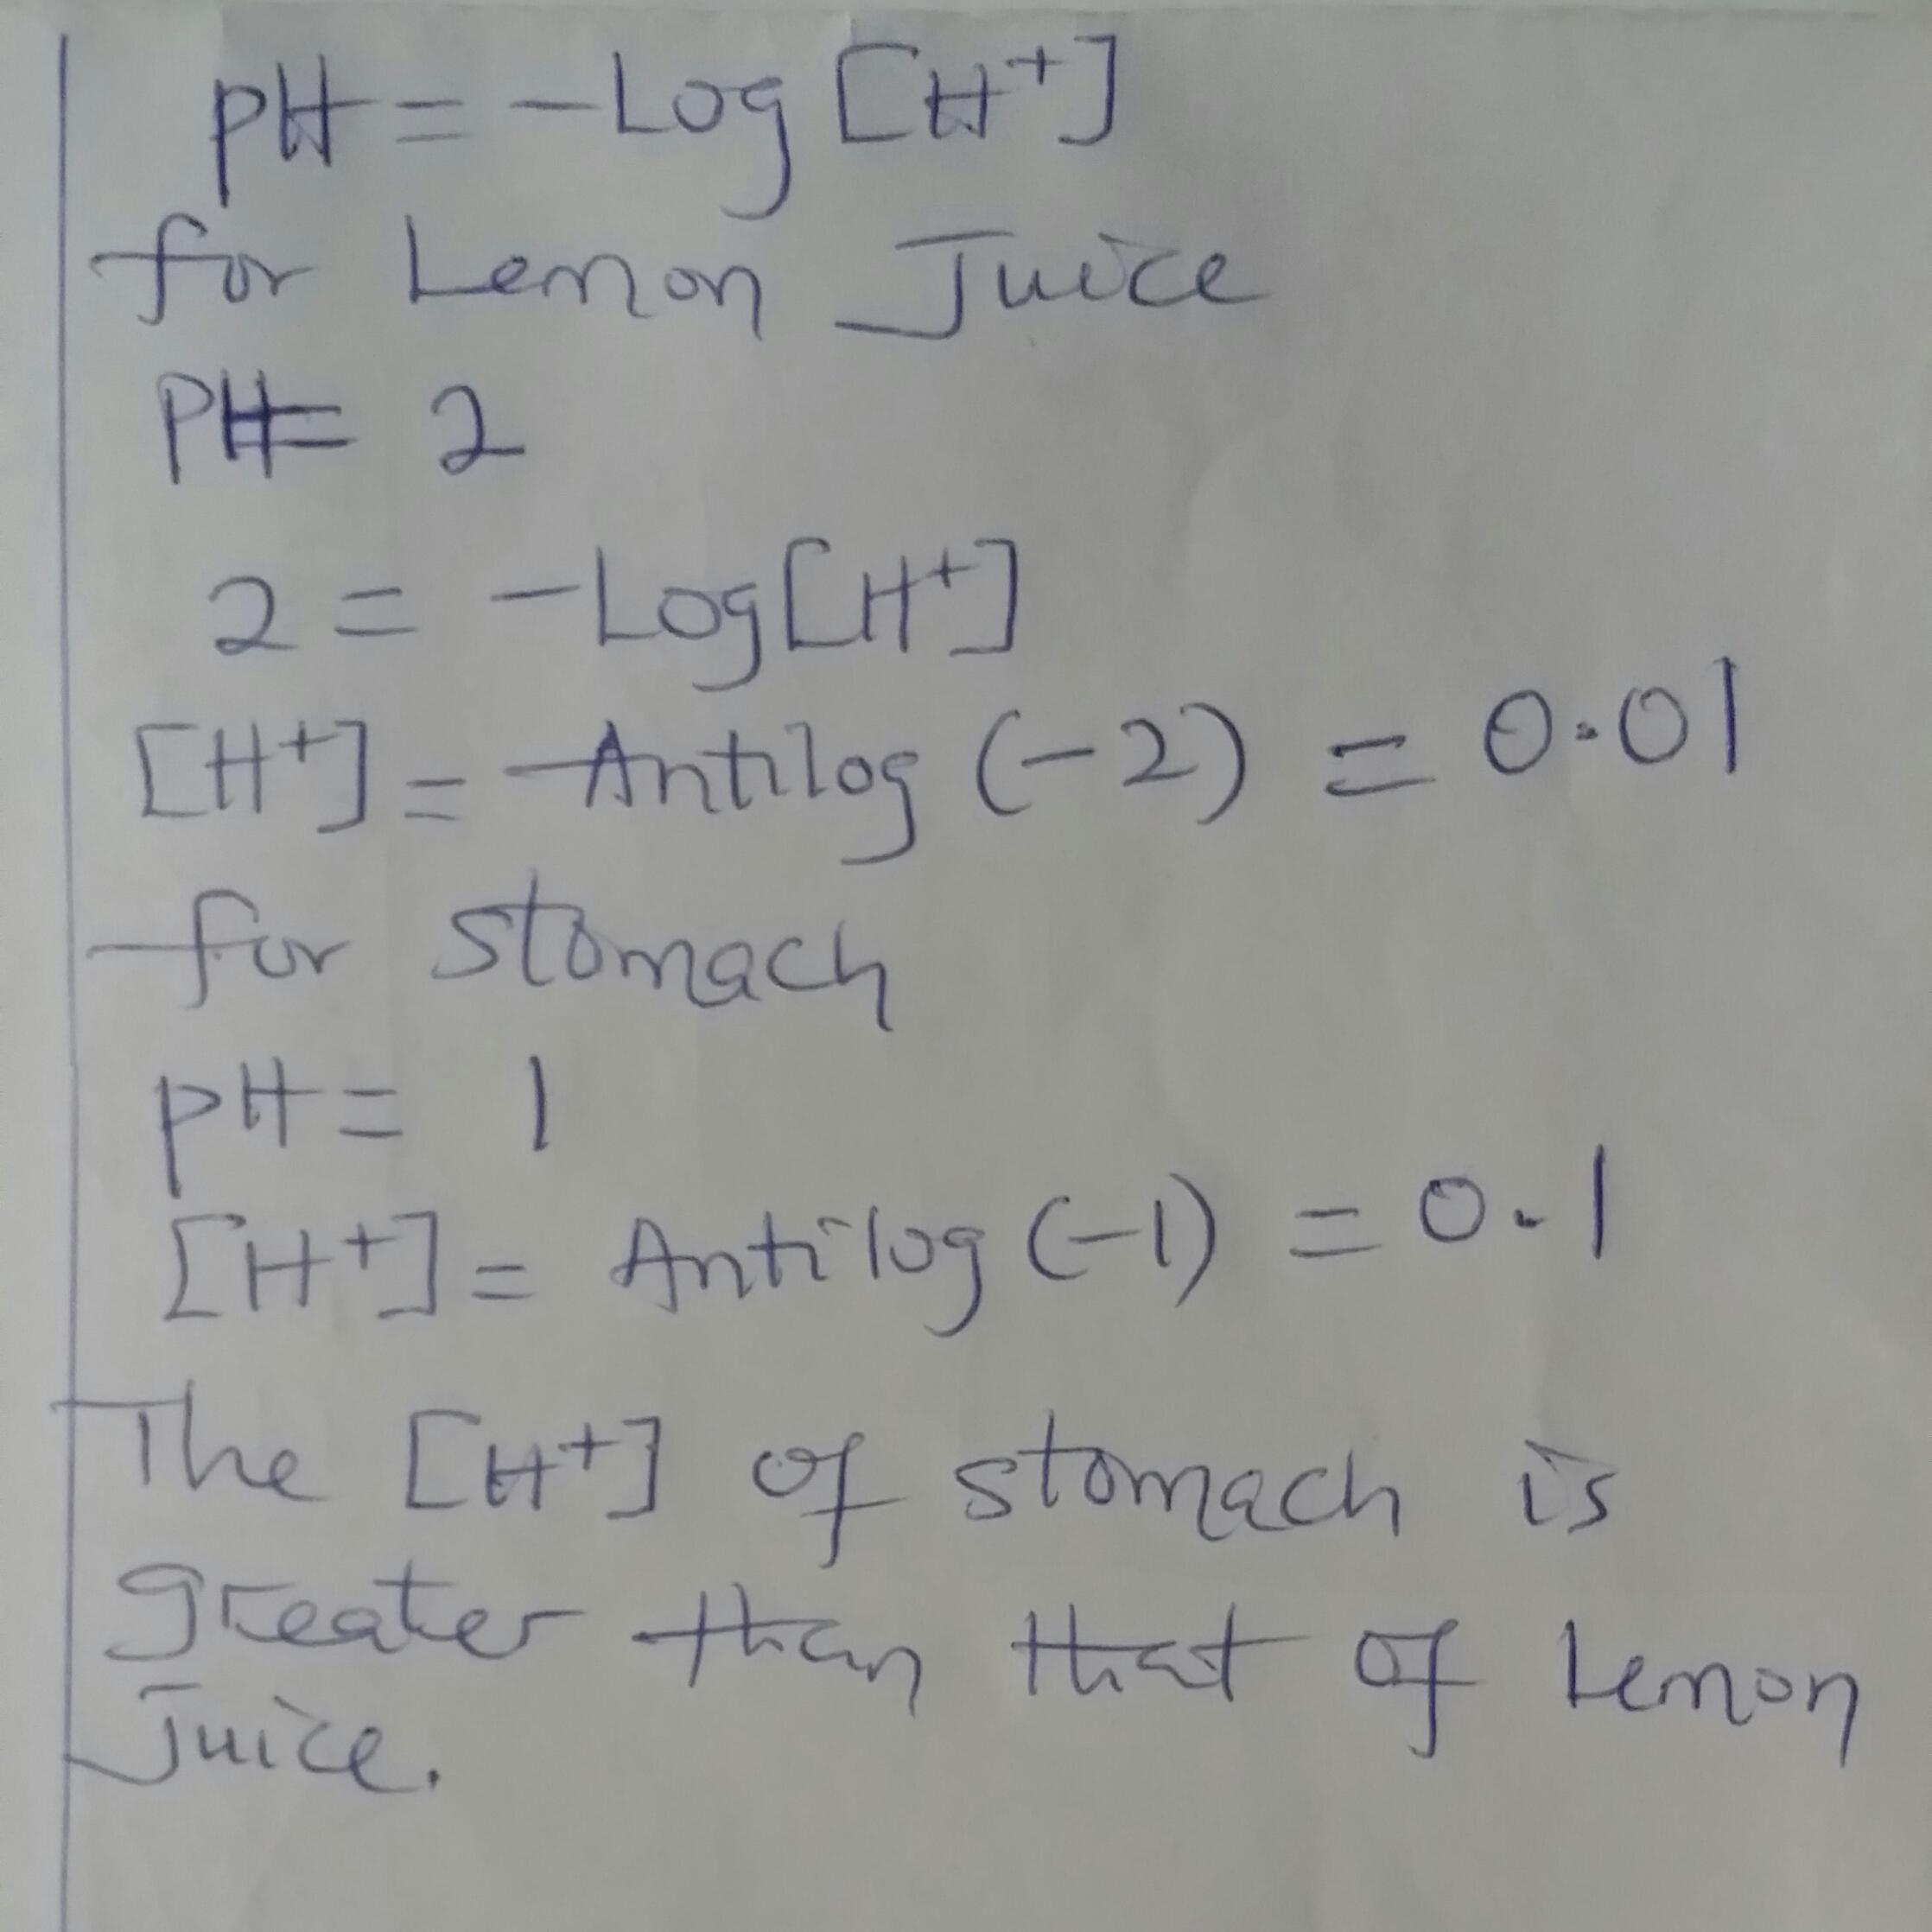 pH = -Log [H⁺]
for Lemon Juice
PH= 2
2 = -Log[H⁺]
[H⁺] = Antilog (-2) = 0.01
for stomach
pH = 1
[H⁺] = Antilog (-1) = 0.1
The [H⁺] of stomach is
greater than that of Lemon
Juice.